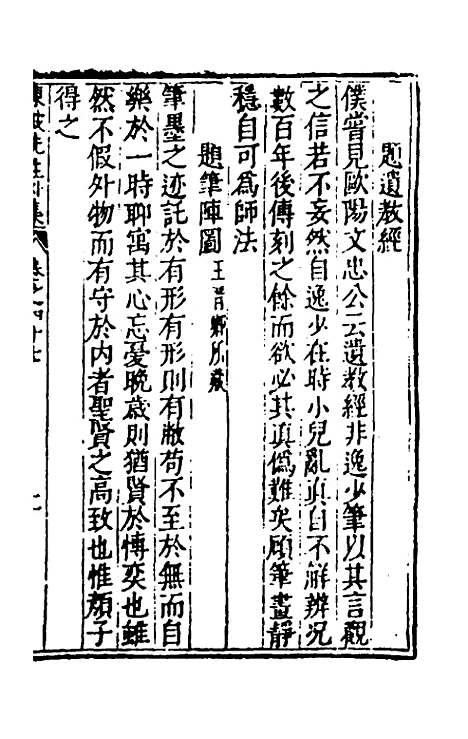 題遺教經
僕嘗見歐陽文忠公云遺教經非逸少筆以其言觀
之信若不妄然自逸少在時小兒亂真自不解辨況
數百年後傳刻之餘而欲必其真僞難矣顧筆畫靜
穩自可爲師法
題筆陣圖王晋卿所藏
筆墨之迹託於有形有形則有敝苟不至於無而自
樂於一時聊寓其心忘憂晚歲則猶賢於愽奕也雖
然不假外物而有守於内者聖賢之高致也惟顏子
得之
東坡先生外集 卷之四十七